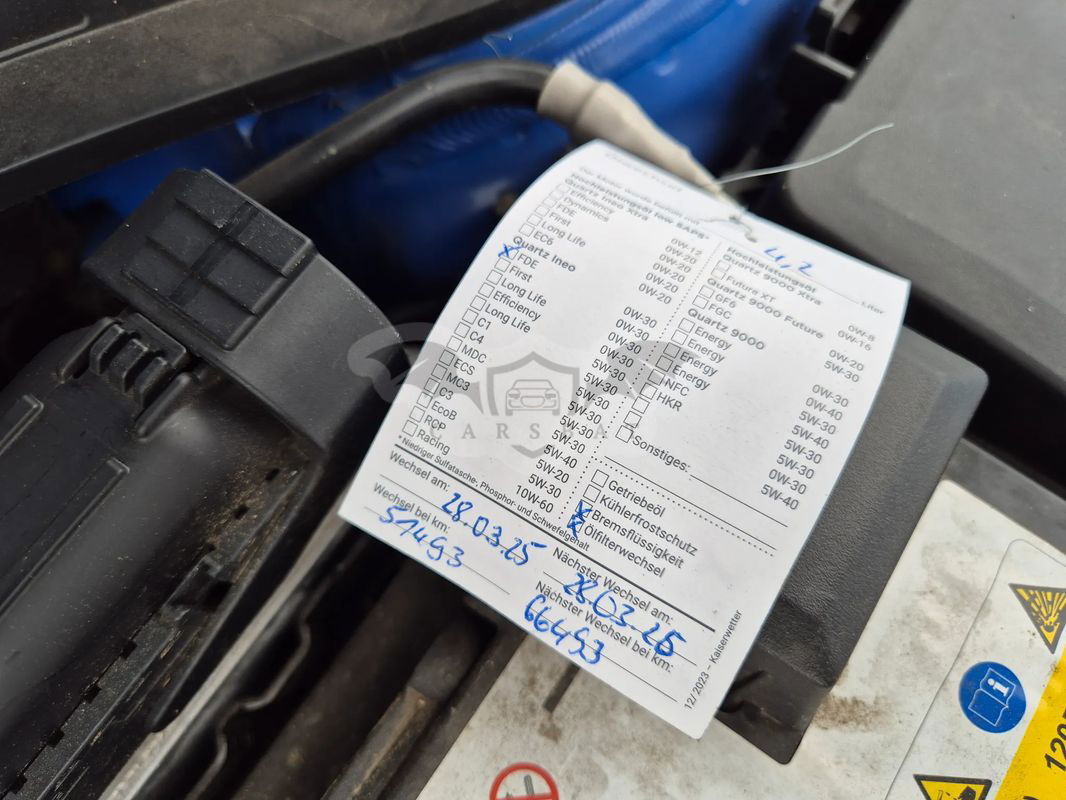 Der Motor wurde befüllt mit
4,2
Liter
Hochleistungsöl low SAPS*
Quartz Ineo Xtra
Efficiency 0W-12
Dynamics 0W-20
FDE 0W-20
First 0W-20
Long Life 0W-20
EC6
Quartz Ineo
FDE 0W-30
First 0W-30
Long Life 0W-30
Efficiency
Long Life 5W-30
C1 5W-30
C4 5W-30
MDC
ECS
MC3 5W-30
C3 5W-40
EcoB 5W-20
RCP 5W-30
Racing 10W-60
*Niedriger Sulfatasche, Phosphor- und Schwefelgehalt
Hochleistungsöl
Quartz 9000 Xtra
Future XT 0W-8
0W-16
Quartz 9000 Future
GF6 0W-20
FGC 5W-30
Quartz 9000
Energy 0W-30
Energy 0W-40
Energy 5W-30
Energy 5W-40
NFC 5W-30
HKR
0W-30
5W-40
Sonstiges:
Getriebeöl
Kühlerfrostschutz
Bremsflüssigkeit
Ölfilterwechsel
Wechsel am: 28.03.25
Nächster Wechsel am: 28.03.26
Wechsel bei km: 51493
Nächster Wechsel bei km: 66493
12/2023 – Kaiserwetter
CARSBA
120